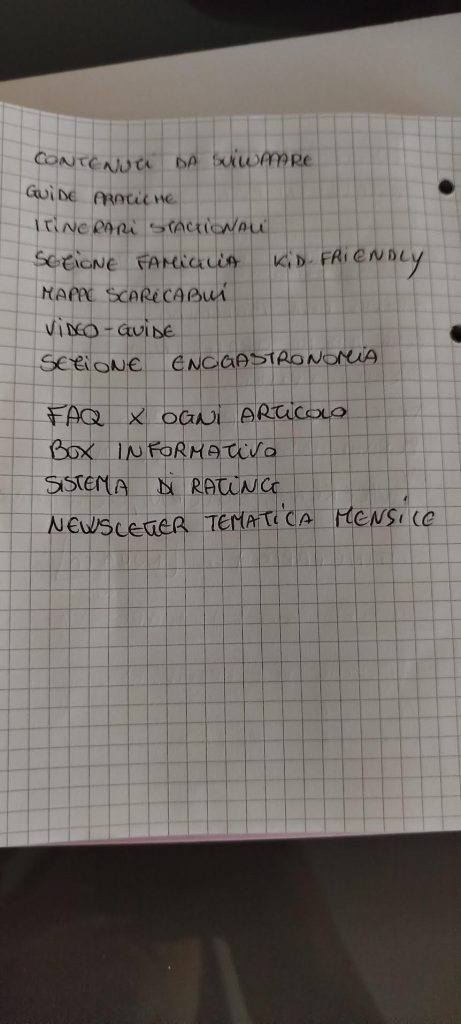 CONTENUTI DA SVILUPPARE
GUIDE PRATICHE
ITINERARI STAGIONALI
SEZIONE FAMIGLIA KID-FRIENDLY
MAPPE SCARICABILI
VIDEO-GUIDE
SEZIONE ENOGASTRONOMIA
FAQ X OGNI ARTICOLO
BOX INFORMATIVO
SISTEMA DI RATING
NEWSLETTER TEMATICA MENSILE